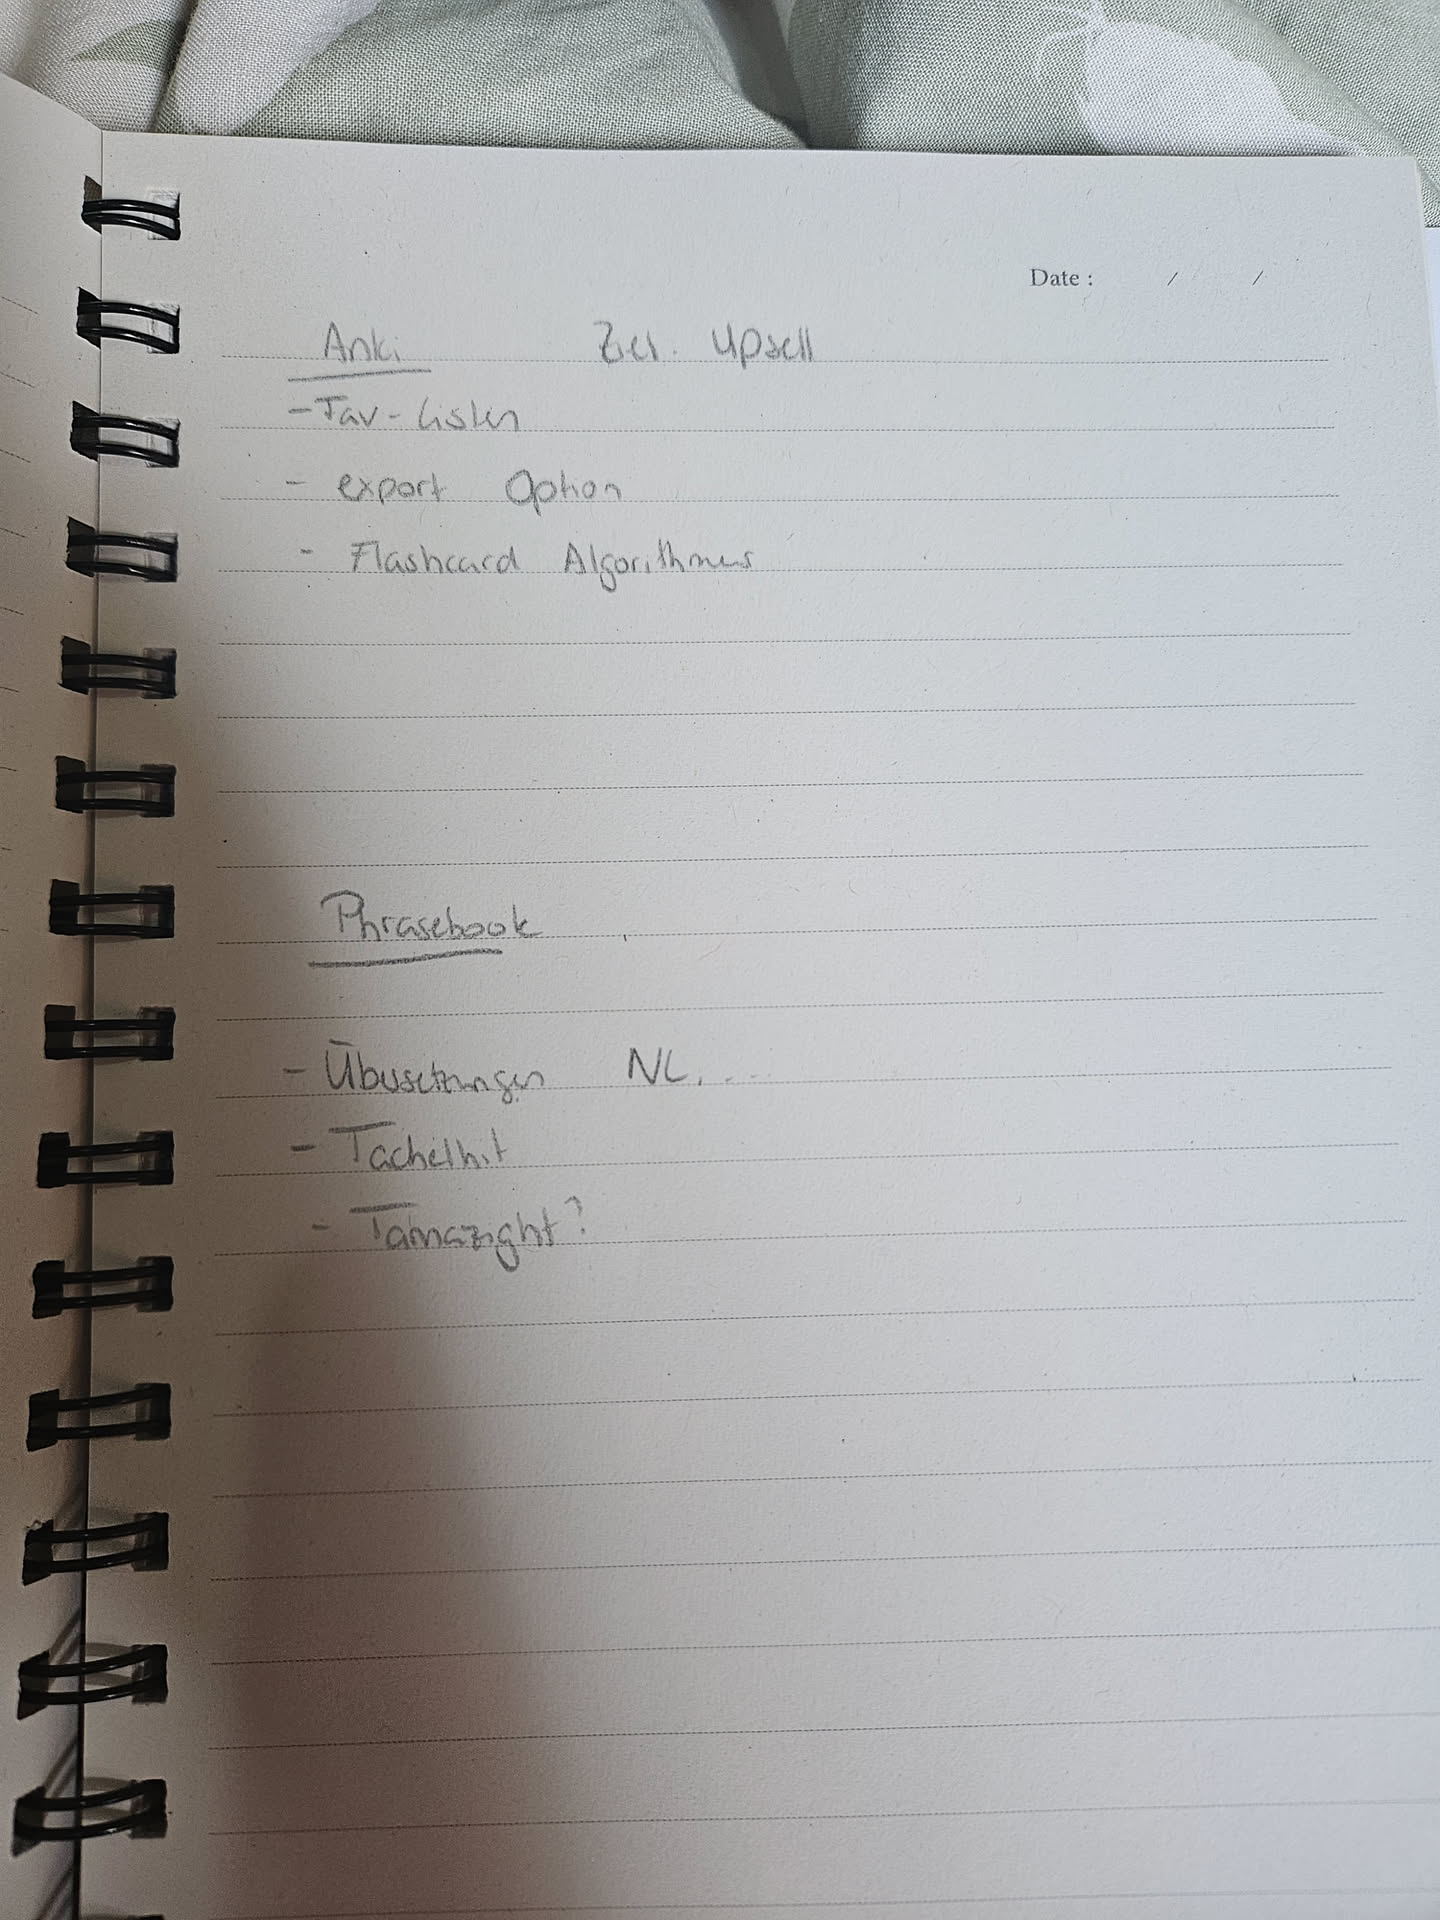 Date : / /
Anki Ziel. Upsell
- Fav-Listen
- export Option
- Flashcard Algorithmus
Phrasebook
- Übersetzungen NL. ...
- Tachelhit
- Tamazight?